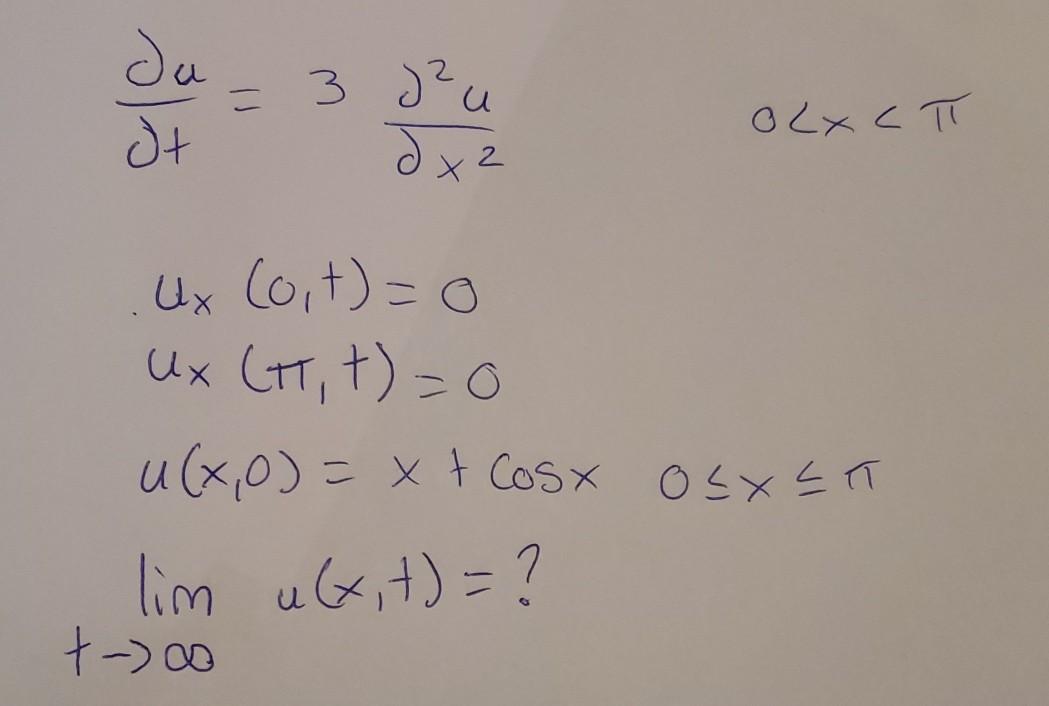 ∂u/∂t = 3 ∂²u/∂x² 0<x<π
u_x (0,t) = 0
u_x (π,t) = 0
u(x,0) = x + cosx 0≤x≤π
lim u(x,t) = ?
t→∞